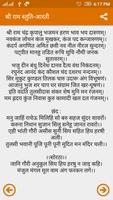 6:17 PM
श्री राम स्तुति-आरती
श्री राम चंद्र कृपालु भजमन हरण भाव भय दारुणम्।
नवकंज लोचन कंज मुखकर, कंज पद कन्जारुणम्।।
कंदर्प अगणित अमित छवी नव नील नीरज सुन्दरम्।
पट्पीत मानहु तडित रूचि शुचि नौमी जनक
सुतावरम्।।
भजु दीन बंधु दिनेश दानव दैत्य वंश निकंदनम्।
रघुनंद आनंद कंद कौशल चंद दशरथ नन्दनम्।।
सिर मुकुट कुण्डल तिलक चारु उदारू अंग
विभूषणं।
आजानु भुज शर चाप धर संग्राम जित खर-धूषणं।।
इति वदति तुलसीदास शंकर शेष मुनि मन रंजनम्।
मम ह्रदय कुंज निवास कुरु कामादी खल
दल गंजनम्।।
छंद
मनु जाहिं राचेऊ मिलिहि सो बरु सहज सुंदर
सावरों।
करुना निधान सुजान सिलू सनेहू जानत रावरो।।
एही भांती गौरी असीस सुनी सिय सहित हिय हरषी
अली।
तुलसी भवानी पूजि पूनी पूनी मुदित मन मंदिर
चली।।
।।सोरठा।।
जानि गौरी अनुकूल सिय हिय हरषु न जाइ कहि।
मंजुल मंगल मूल वाम अंग फरकन लगे।।